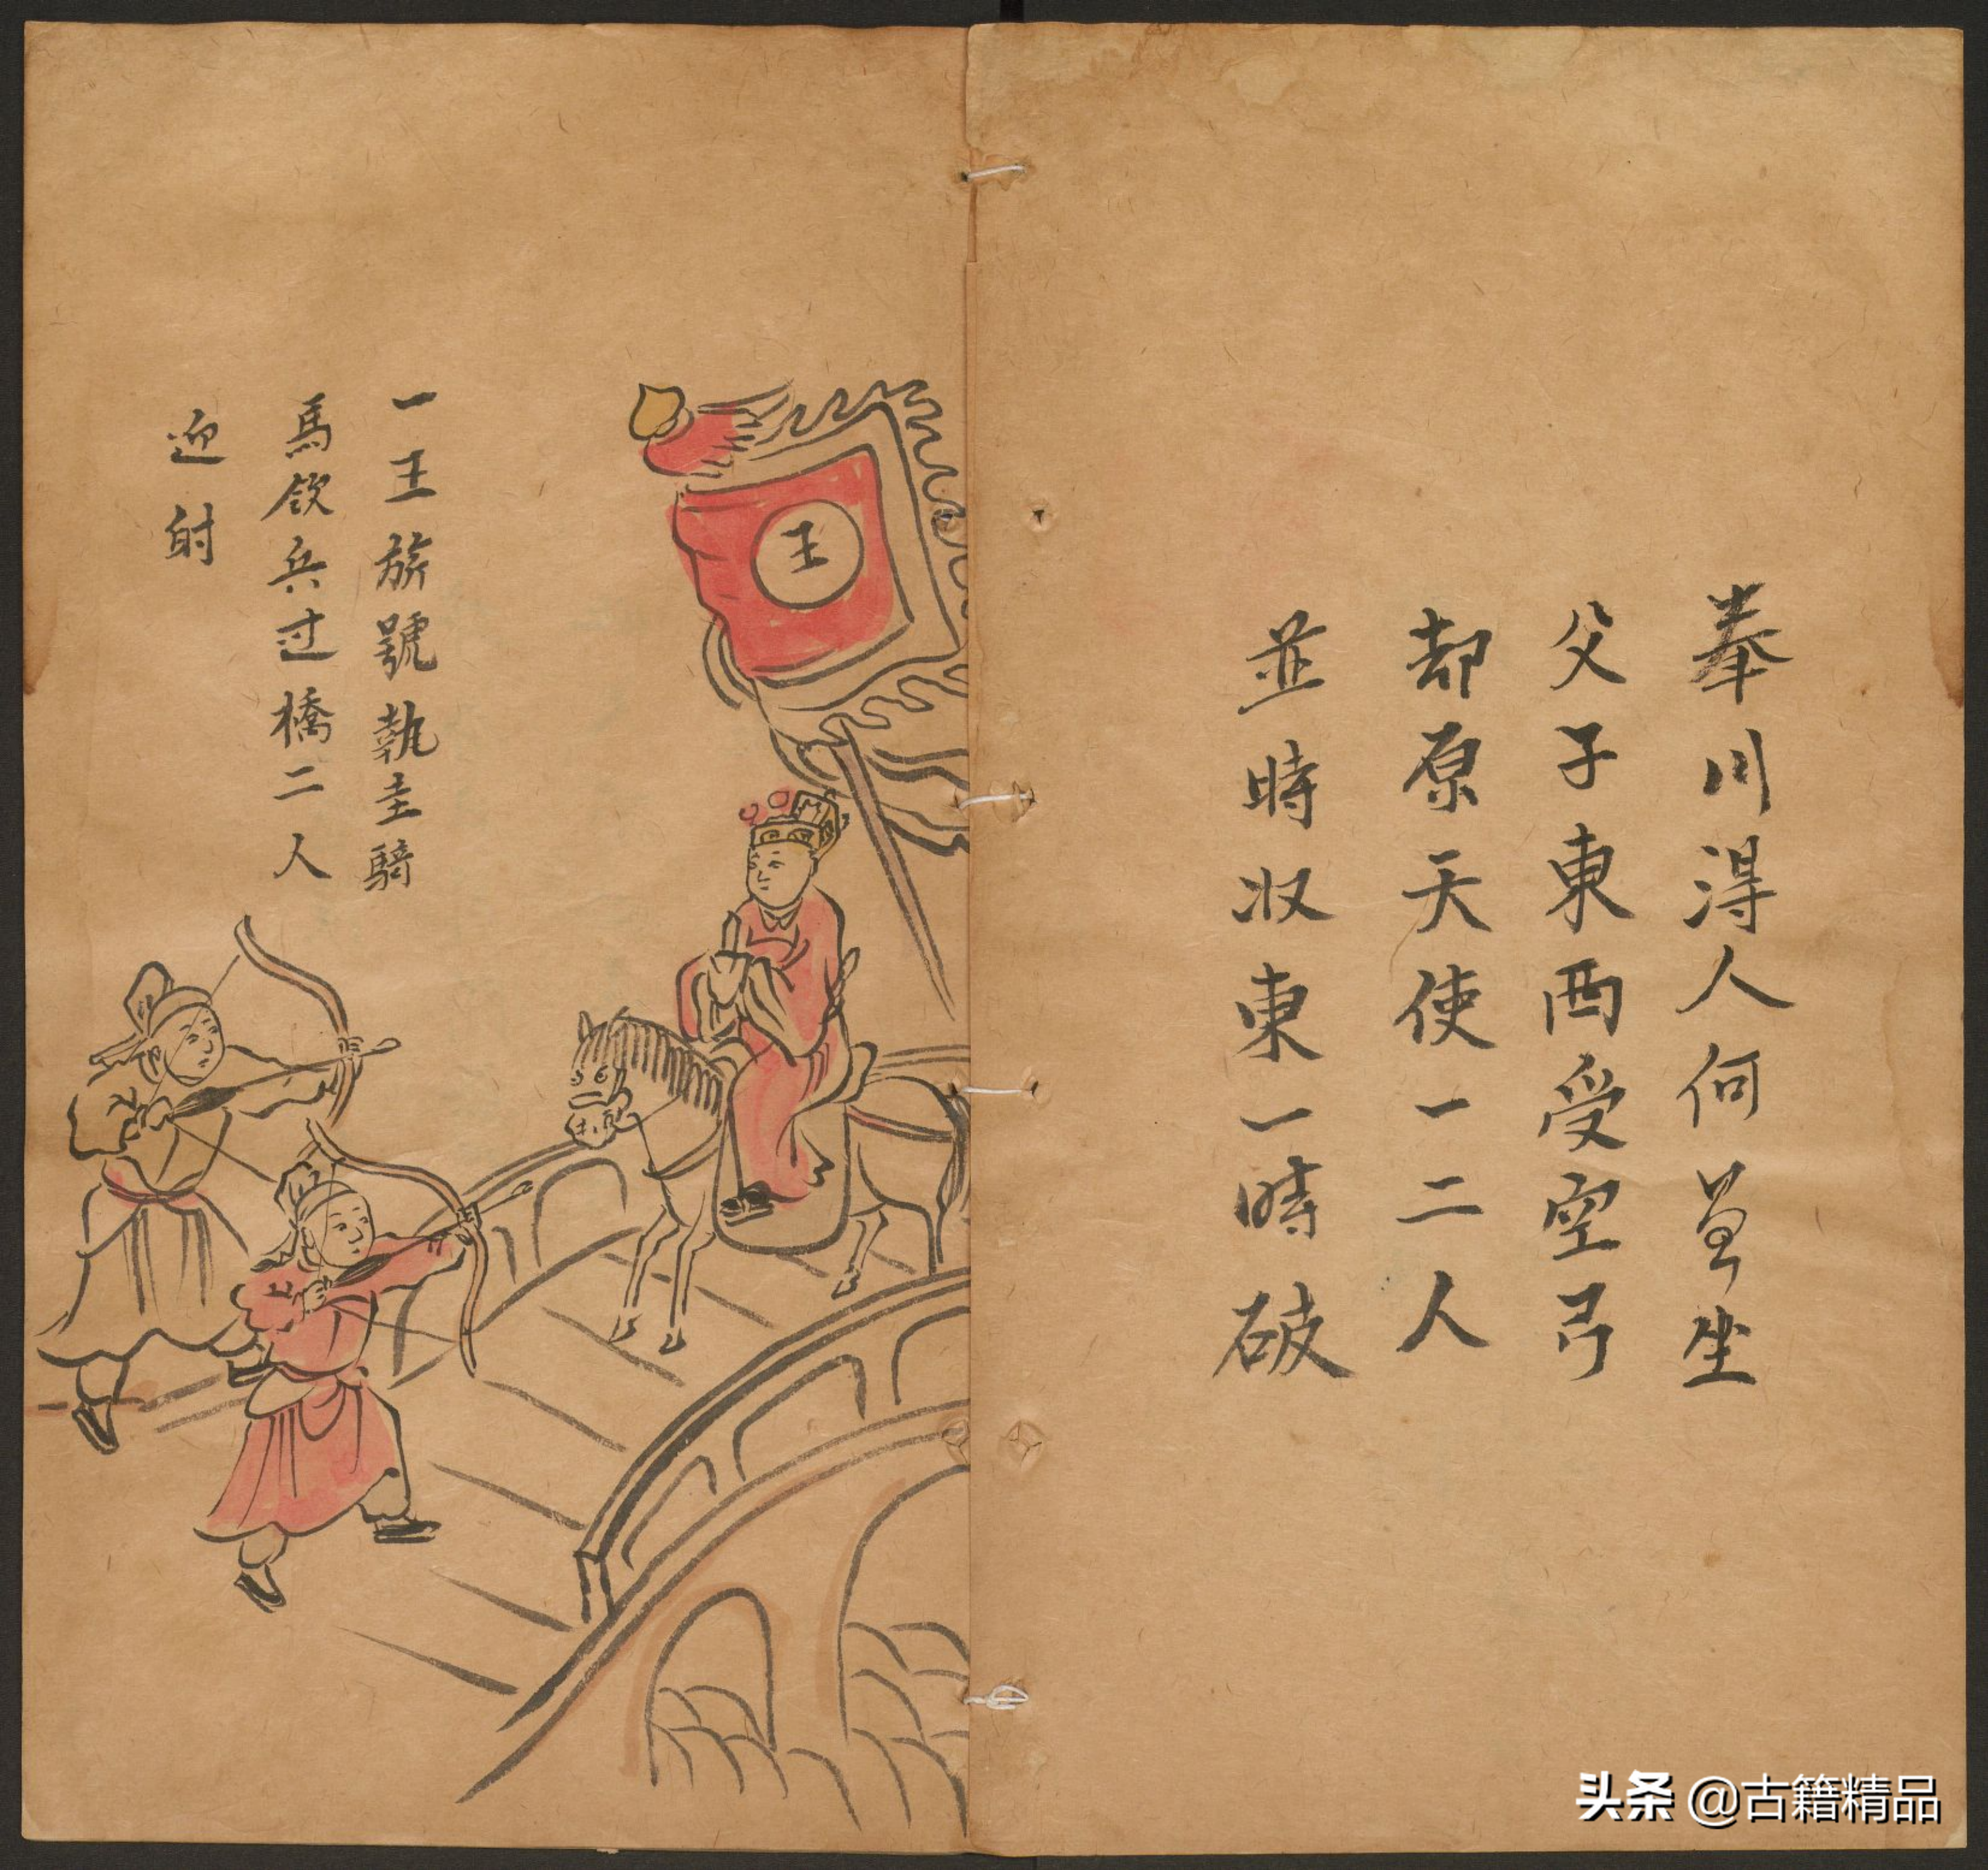 奉川得人何㒵坐
父子東西受空弓
却原天使一二人
並時收東一時破
王
一王旂號執圭騎
馬領兵过橋二人
迎射
头条 @古籍精品